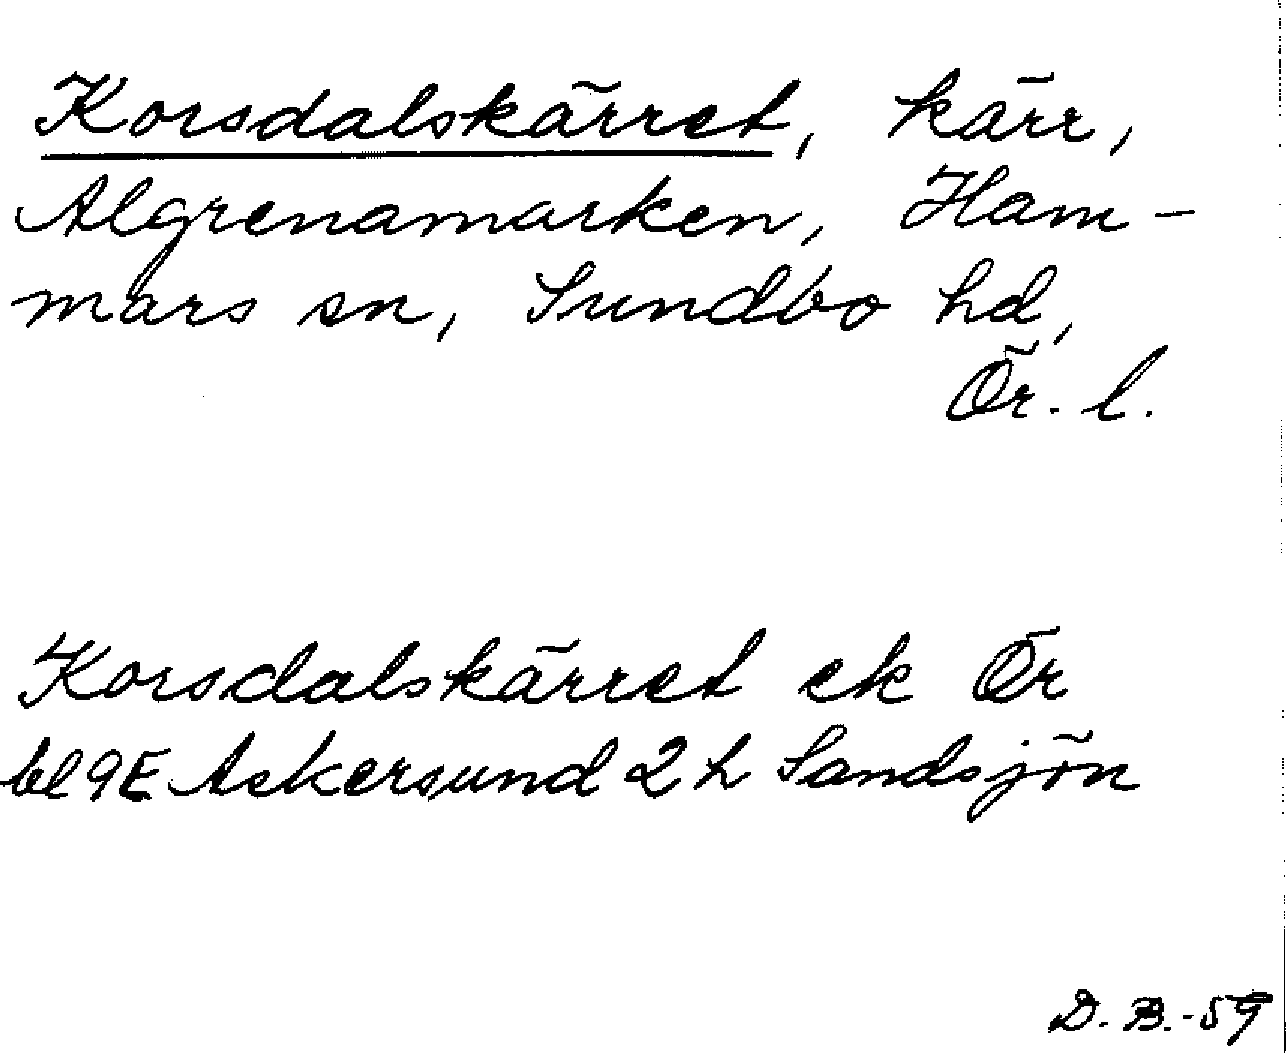 Korsdalskärret, kärr,
Algrenamarken, Ham-
mars sn, Sundbo hd,
Ör. l.
Korsdalskärret ek Ör
bl 9E Askersund 2 h Sandsjön
D. B. - 59